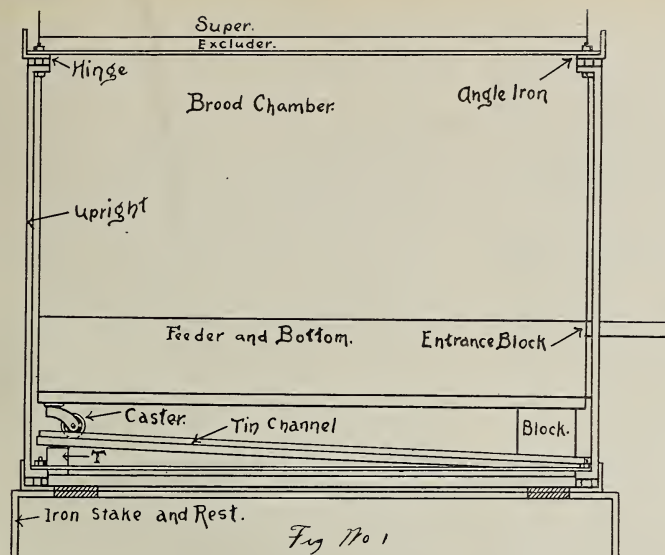 Super.
Excluder.
Hinge
Angle Iron
Brood Chamber.
Upright
Feeder and Bottom.
Entrance Block
Caster.
Tin Channel
Block.
T
Iron Stake and Rest.
Fig No 1